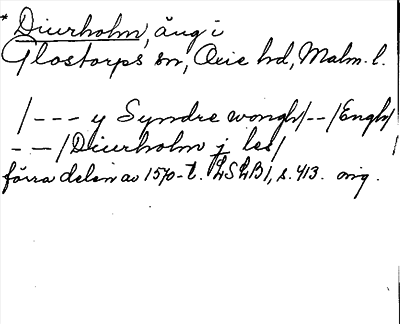 * Diurholm, äng i
Glostorps sn, Oxie hd, Malm. l.
/--- y Syndre wongh/--/Engh/
--/Diurholm j les/
förra delen av 1570-t. LSLB1, s. 413. orig.